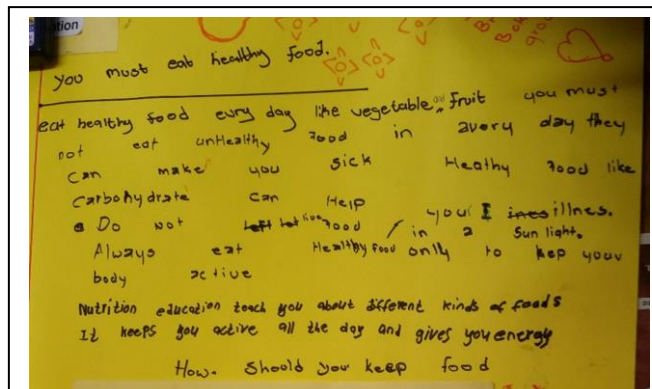 tion
you must eat healthy food.
eat healthy food evry day like vegetable and fruit you must
not eat unHealthy food in avery day they
can make you sick Heathy food like
carbohydrate can Help your I illnes.
Do not food in a Sun light.
Always eat Healthy food only to kep your
body active
Nutrition education teach you about different kinds of foods
It keeps you active all the day and gives you energy
How. Should you keep food